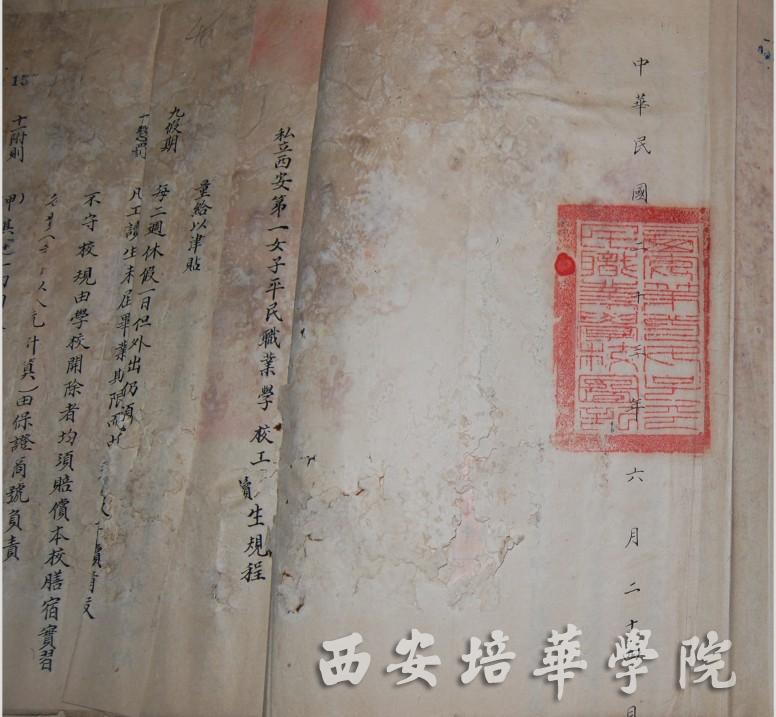 中華民國二十三年六月二十日
私立西安第一女子平民職業學校工讀生規程
量給以津貼
九假期 每二週休假一日但外出仍須
十懲罰 凡工讀生未屆畢業期限而
不守校規由學校開除者均須賠償本校膳宿實習
計算)由保證商號負責
十一附則
15
西安培華學院